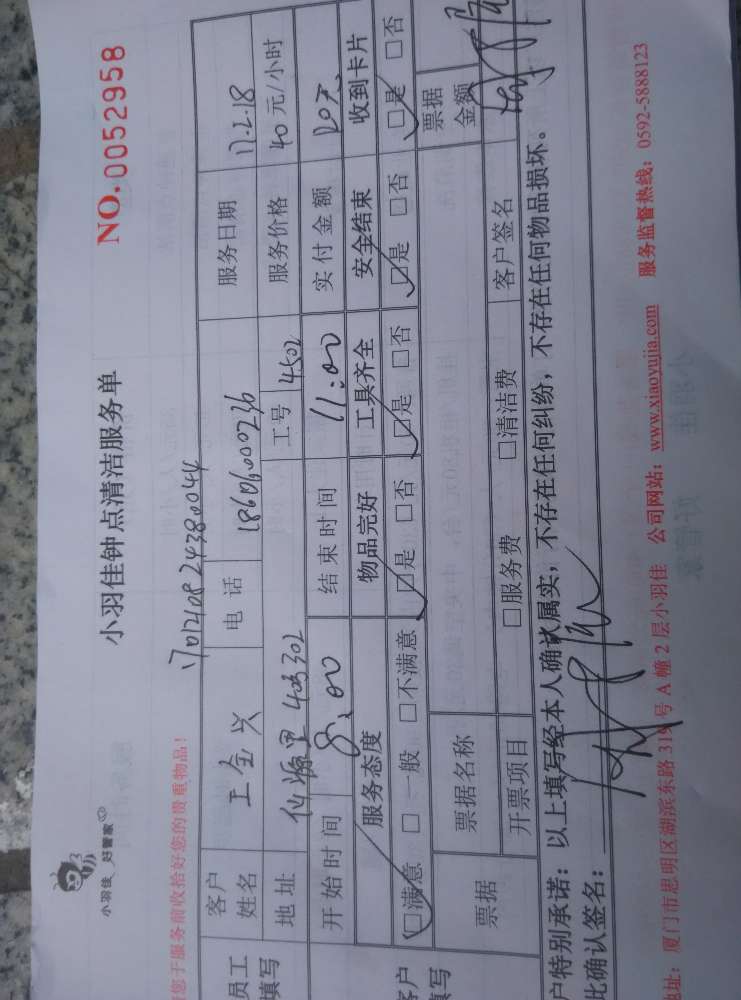 小羽佳 好管家
小羽佳钟点清洁服务单
NO.0052958
您于服务前收拾好您的贵重物品！
员工
填写
客户
姓名
王金兴
电话
18606000236
服务日期
17-2-18
地址
仙源里 403302
工号
4502
服务价格
40元/小时
开始时间
8:00
结束时间
11:00
实付金额
120元
客户
填写
服务态度
物品完好
工具齐全
安全结束
收到卡片
□满意 □一般 □不满意
□是 □否
□是 □否
□是 □否
□是 □否
票据
票据名称
票据
金额
开票项目
□服务费 □清洁费
客户签名
户特别承诺：以上填写经本人确认属实，不存在任何纠纷，不存在任何物品损坏。
此确认签名：
地址：厦门市思明区湖滨东路319号A幢2层小羽佳 公司网站：www.xiaoyujia.com 服务监督热线：0592-5888123